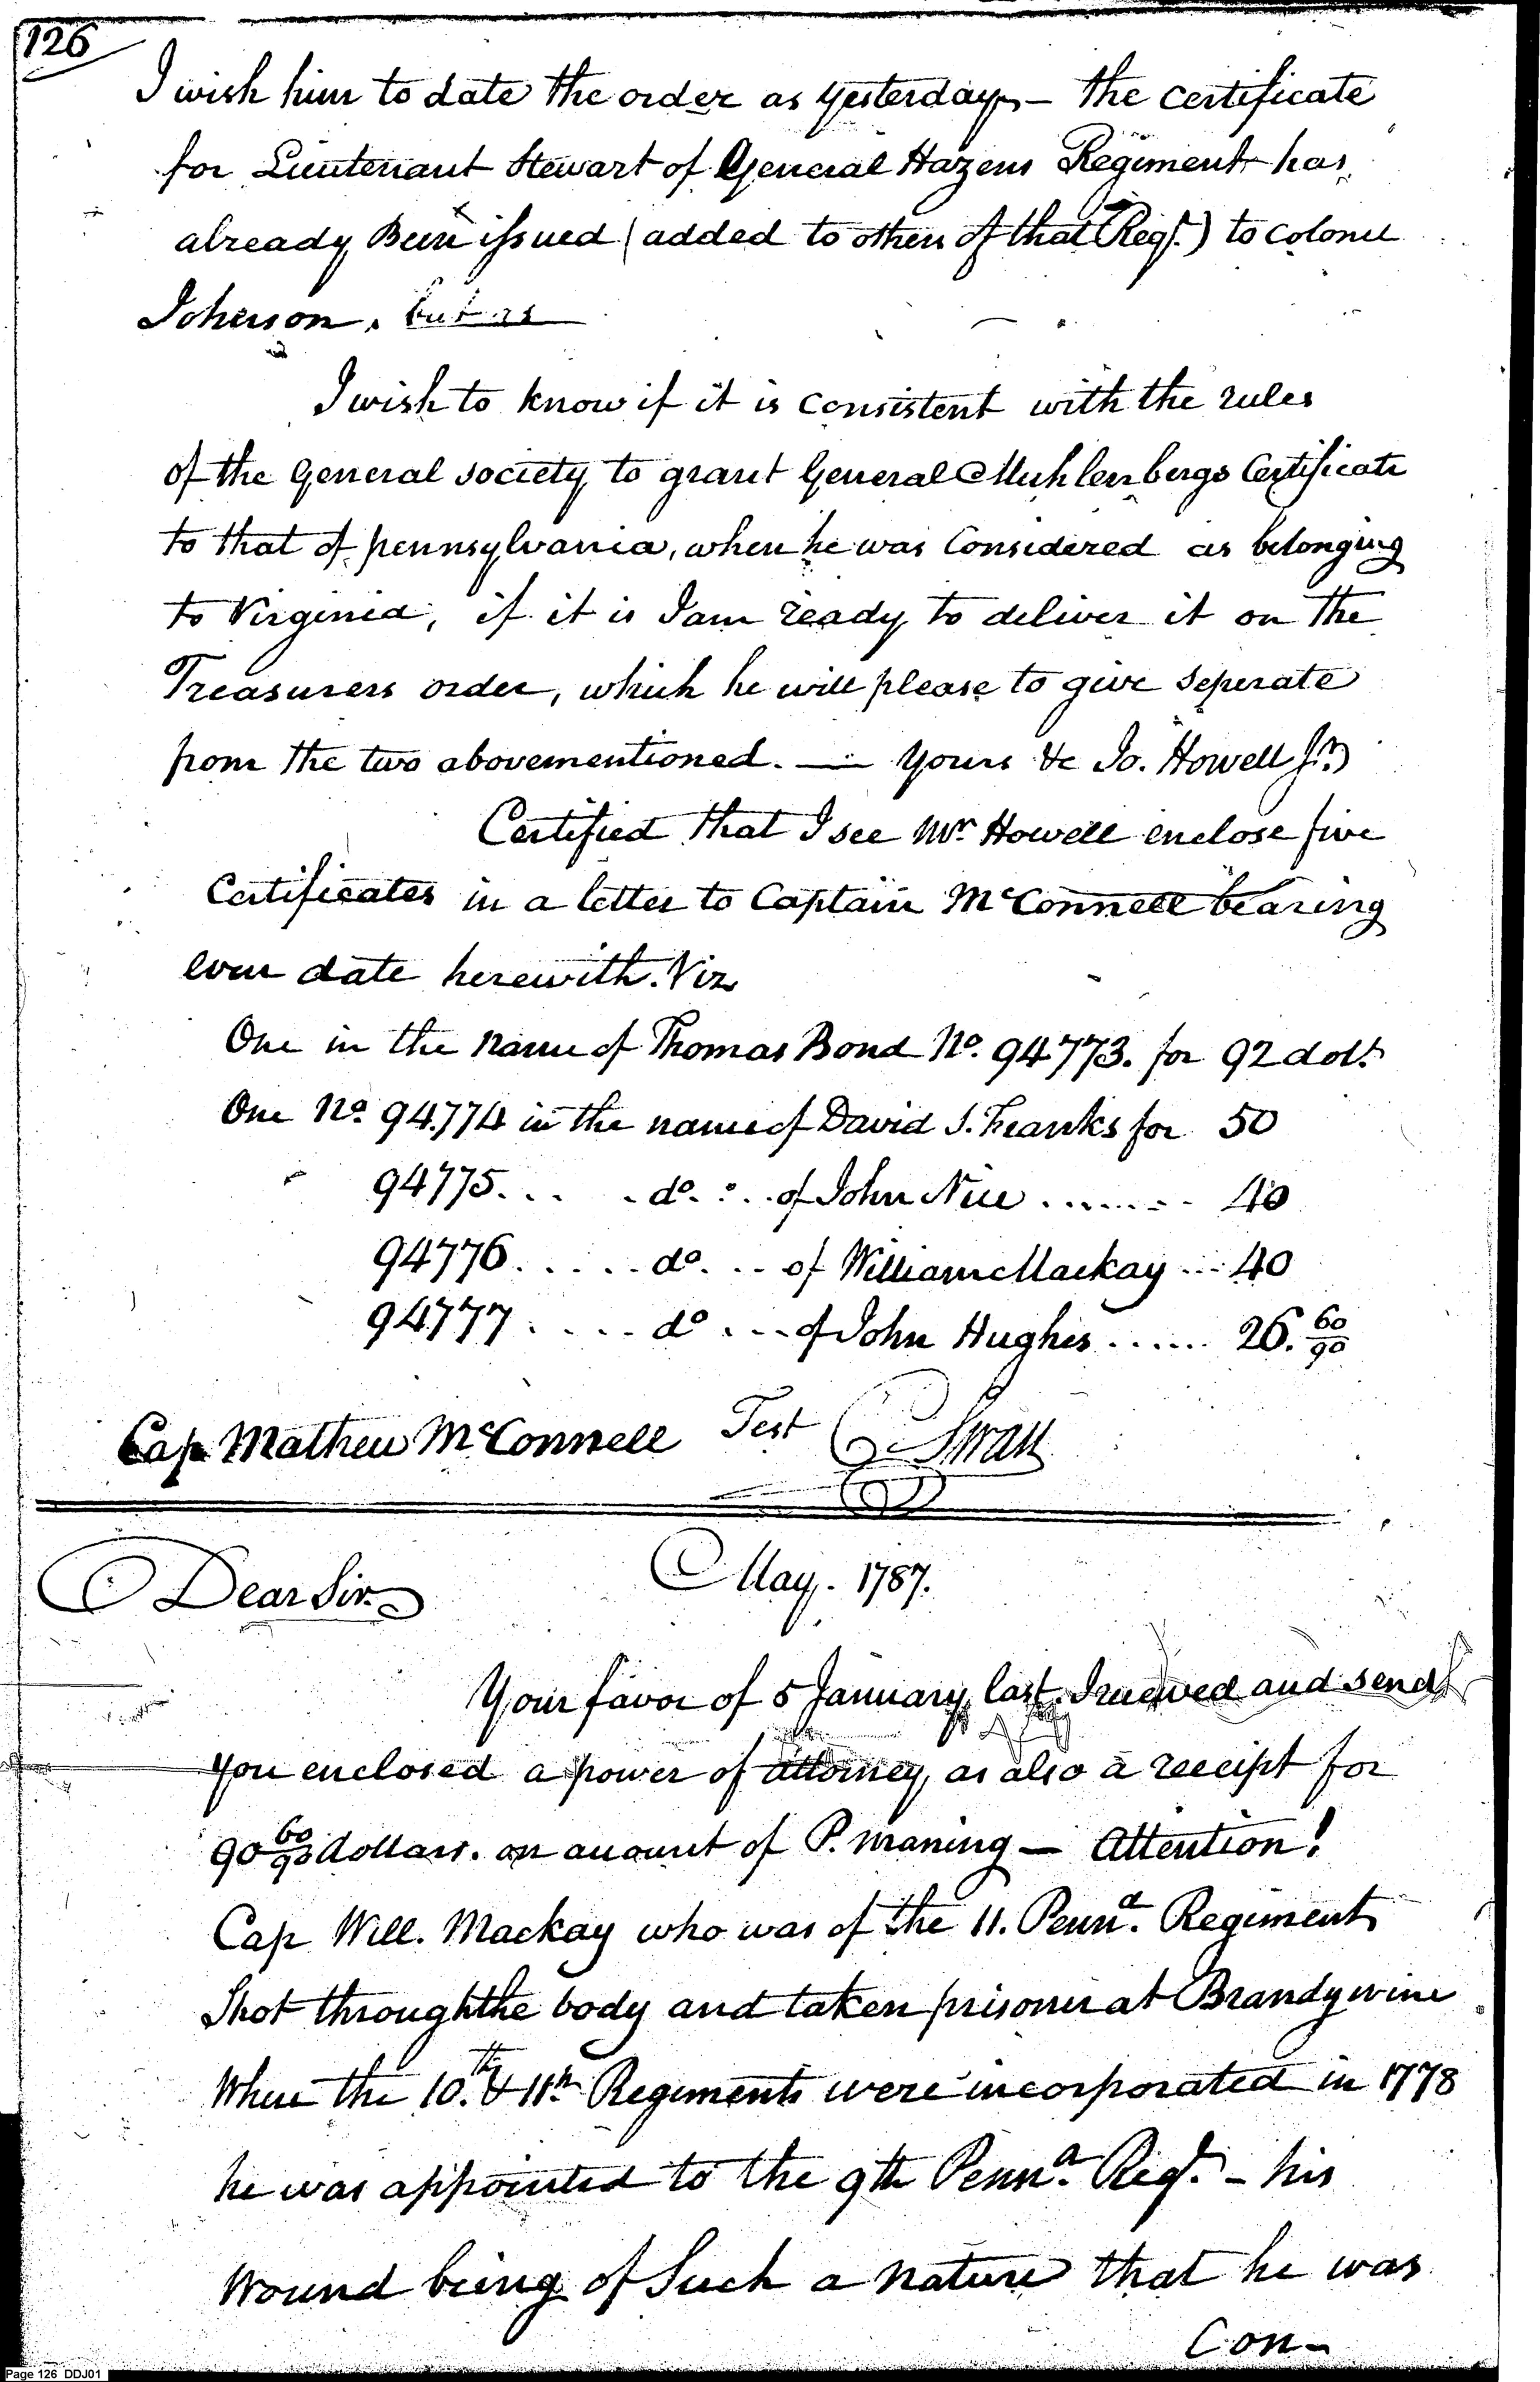 126
I wish him to date the order as yesterday, – the certificate
for Lieutenant Stewart of General Hazens Regiment has
already Been issued (added to others of that Regt.) to colonel
Johnson. but as
I wish to know if it is consistent with the rules
of the General society to grant General Muhlenbergs Certificate
to that of pennsylvania, when he was Considered as belonging
to Virginia, if it is I am ready to deliver it on the
Treasurers order, which he will please to give seperate
from the two abovementioned. — Yours &c Jo. Howell Jr.
Certified that I see Mr. Howell enclose five
Certificates in a letter to Captain McConnell bearing
even date herewith. Viz
One in the name of Thomas Bond No. 94773. for 92 dolls
One No. 94774 in the name of David S. Franks for 50
94775. . . . do. . . of John Nice . . . . . . . 40
94776. . . . . do. . . of William Mackay . . . 40
94777 . . . . do . . . of John Hughes . . . . . 26. 60/90
Cap Mathew McConnell Test C Swan
May. 1787.
Dear Sir.
Your favor of 5 January, last. I received and send
you enclosed a power of attorney, as also a receipt for
90 60/90 dollars. on account of P. Maning — Attention!
Cap Will. Mackay who was of the 11. Penna. Regiment
Shot through the body and taken prisoner at Brandywine
When the 10.th & 11th Regiments were incorporated in 1778
he was appointed to the 9th Penna. Regt. – his
Wound being of Such a nature that he was
Con-
Page 126 DDJ01